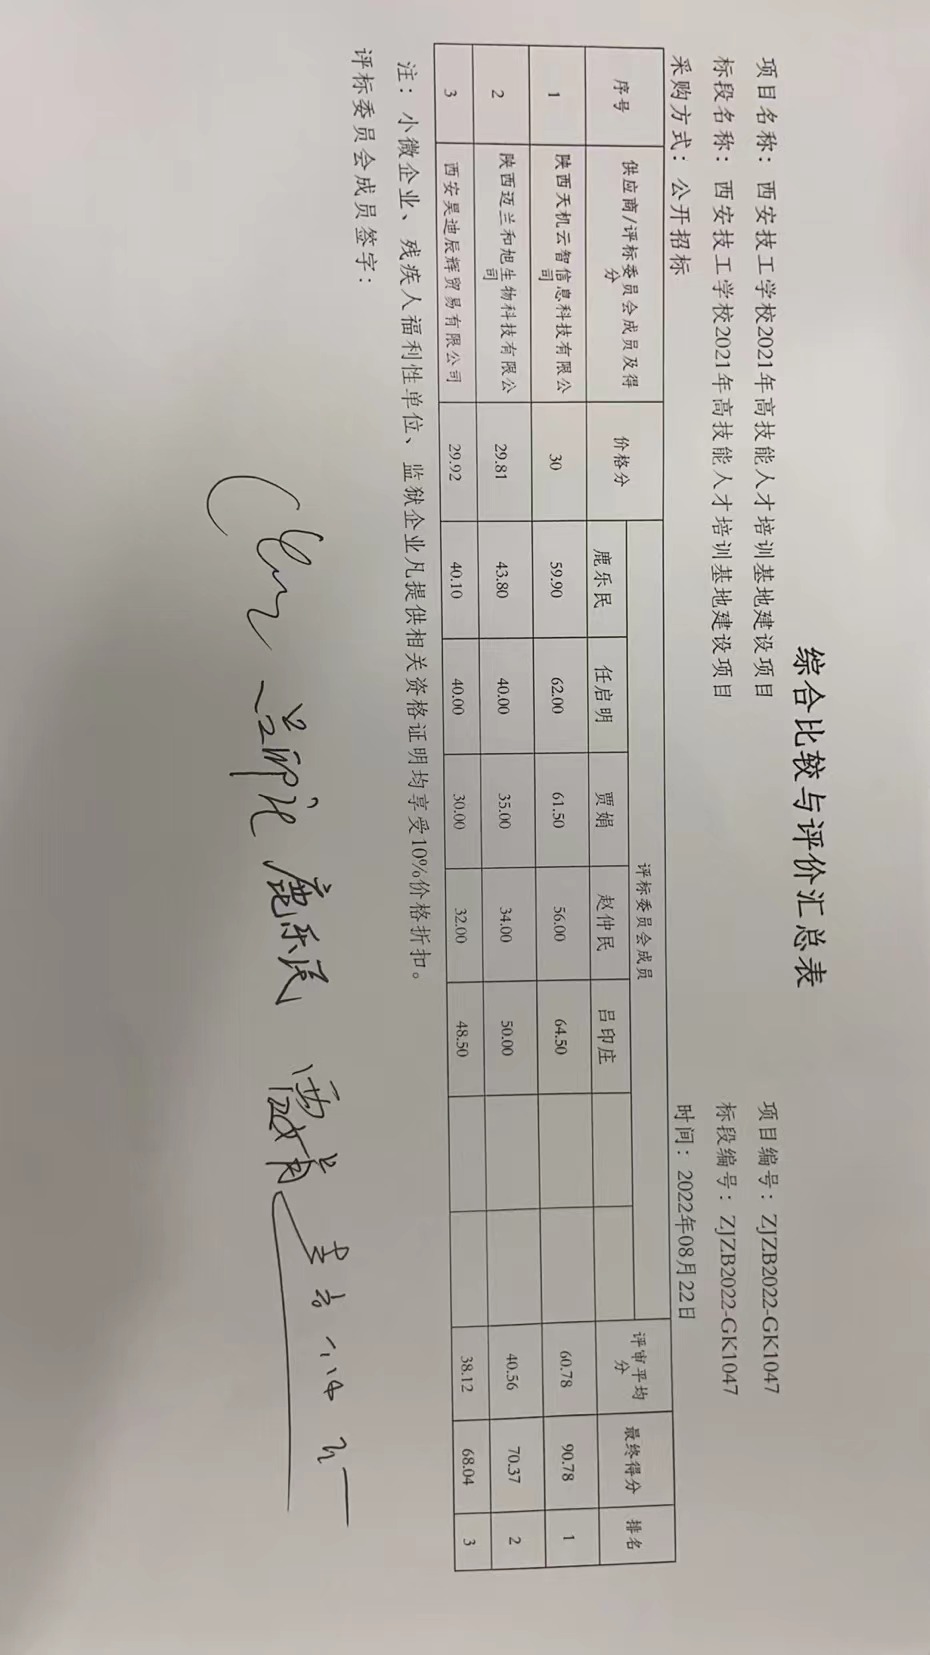 综合比较与评价汇总表
项目名称：西安技工学校2021年高技能人才培训基地建设项目 项目编号：ZJZB2022-GK1047
标段名称：西安技工学校2021年高技能人才培训基地建设项目 标段编号：ZJZB2022-GK1047
采购方式：公开招标 时间：2022年08月22日
序号 供应商/评标委员会成员及得分 价格分 评标委员会成员 评审平均分 最终得分 排名
鹿乐民 任启明 贾娟 赵仲民 吕印庄
1 陕西天机云智信息科技有限公司 30 59.90 62.00 61.50 56.00 64.50 60.78 90.78 1
2 陕西迈兰和旭生物科技有限公司 29.81 43.80 40.00 35.00 34.00 50.00 40.56 70.37 2
3 西安昊迪辰辉贸易有限公司 29.92 40.10 40.00 30.00 32.00 48.50 38.12 68.04 3
注：小微企业、残疾人福利性单位、监狱企业凡提供相关资格证明均享受10%价格折扣。
评标委员会成员签字：
鹿乐民